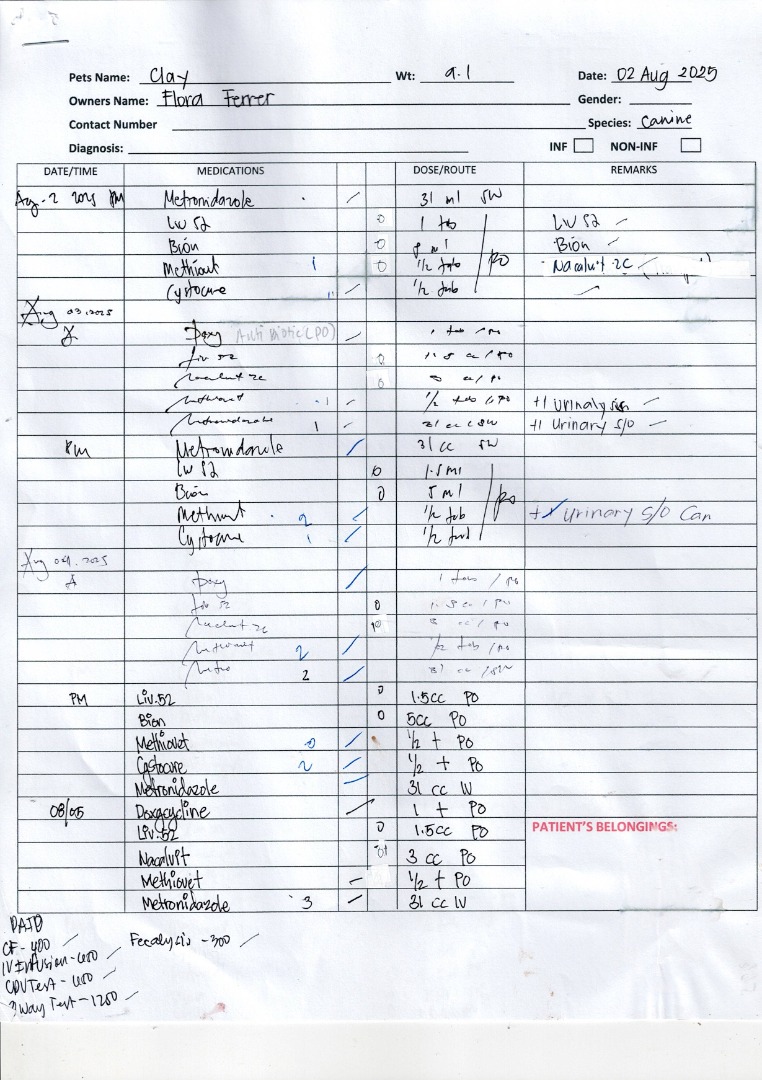 Pets Name: Clay Wt: 9.1 Date: 02 Aug 2025
Owners Name: Flora Ferrer Gender:
Contact Number Species: Canine
Diagnosis: INF NON-INF
DATE/TIME MEDICATIONS DOSE/ROUTE REMARKS
Aug-2 2025 PM Metronidazole 31 ml
LIV 52 0 1 tab LIV 52
Bion 0 ml Bion
Methiovet 1 0 1/2 tab PO Nacalvit 2C
Cystocure 1/2 tab
Aug 03.2025
Doxy Anti Biotic (PO) 1 tab / PO
Liv 52 0 1.5 cc / PO
Nacalvit 2c 0 cc / PO
Methiovet 1 1/2 tab / PO +1 Urinalysis
Metronidazole 1 31 cc +1 Urinary S/O
PM Metronidazole 31 cc
LIV 52 0 1.5 ml
Bion 0 5 ml PO
Methiovet 2 1/2 tab Urinary S/O Can
Cystocure 1 1/2 tab
Aug 04.2025
Doxy 1 tab / PO
Liv 52 0 1.5 cc / PO
Nacalvit 2c cc / PO
Methiovet 2 1/2 tab / PO
Metro 2 31 cc
PM Liv.52 0 1.5cc PO
Bion 0 5cc PO
Methiovet 0 1/2 t PO
Cystocure 2 1/2 t PO
Metronidazole 31 cc IV
08/05 Doxycycline 1 t PO
Liv.52 0 1.5cc PO PATIENT'S BELONGINGS:
Nacalvit 3 cc PO
Methiovet 1/2 t PO
Metronidazole 3 31 cc IV
PAID
CF - 400 Fecalysis - 300
IV Infusion - 600
CDV Test - 600
3 Way Test - 1200